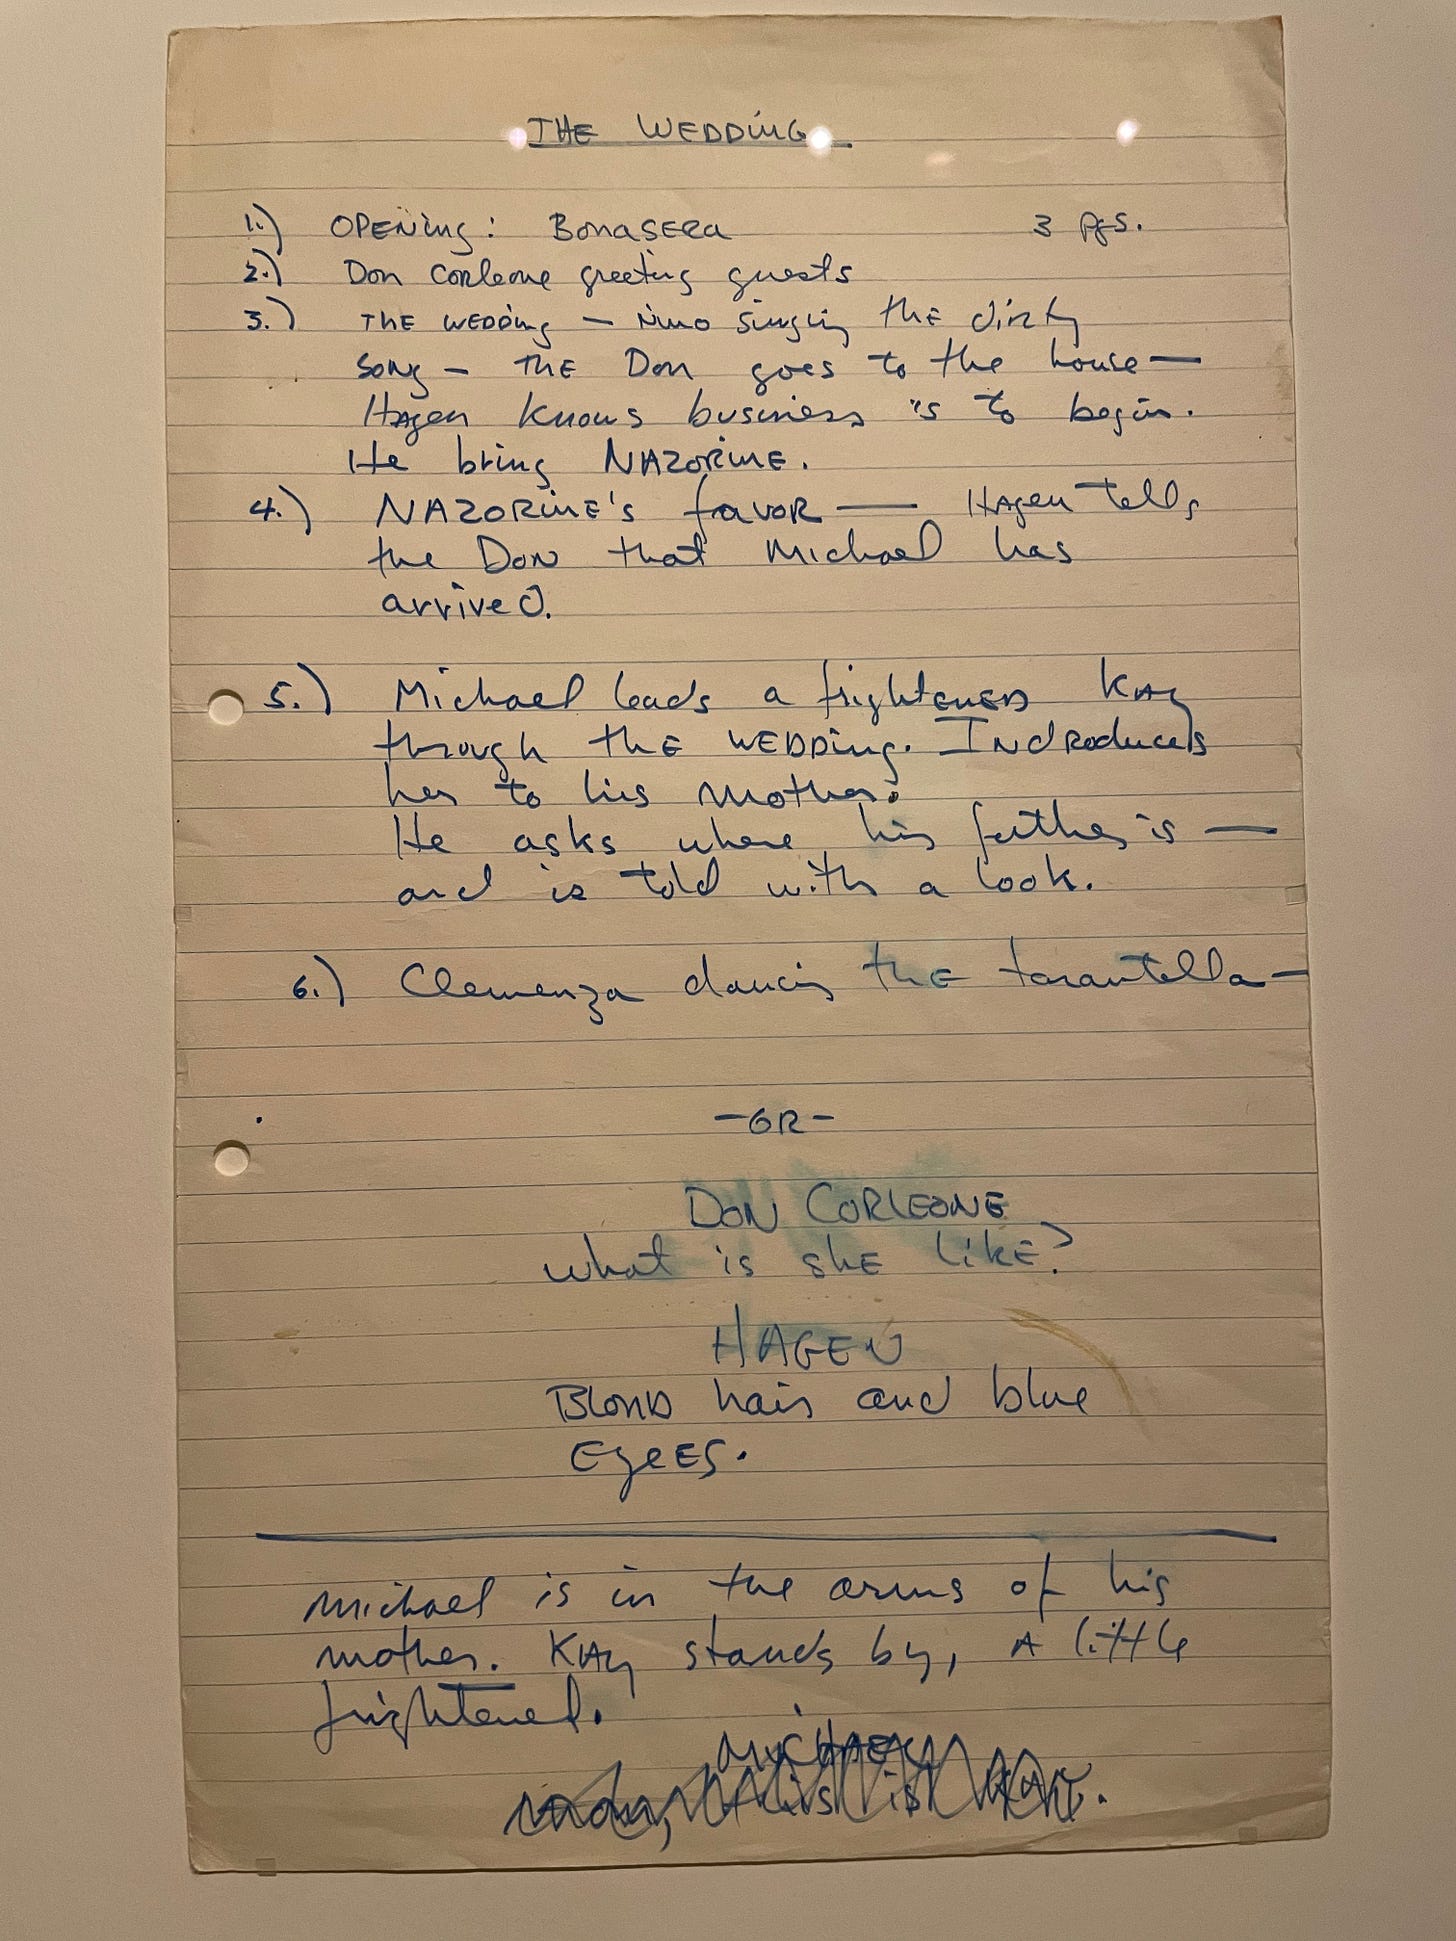 THE WEDDING
1.) OPENING: Bonasera 3 pgs.
2.) Don Corleone greeting guests
3.) THE WEDDING — Nino singing the dirty
song — THE Don goes to the house —
Hagen knows business is to begin.
He bring NAZORINE.
4.) NAZORINE'S favor — Hagen tells
the Don that Michael has
arrived.
5.) Michael leads a frightened Kay
through the wedding. Indroduces
her to his mother.
He asks where his father is —
and is told with a look.
6.) Clemenza dancing the tarantella —
- OR -
DON CORLEONE
what is she like?
HAGEN
Blond hair and blue
Eyees.
Michael is in the arms of his
mother. Kay stands by, a little
frightened.
MICHAEL
mom, this is Kay.